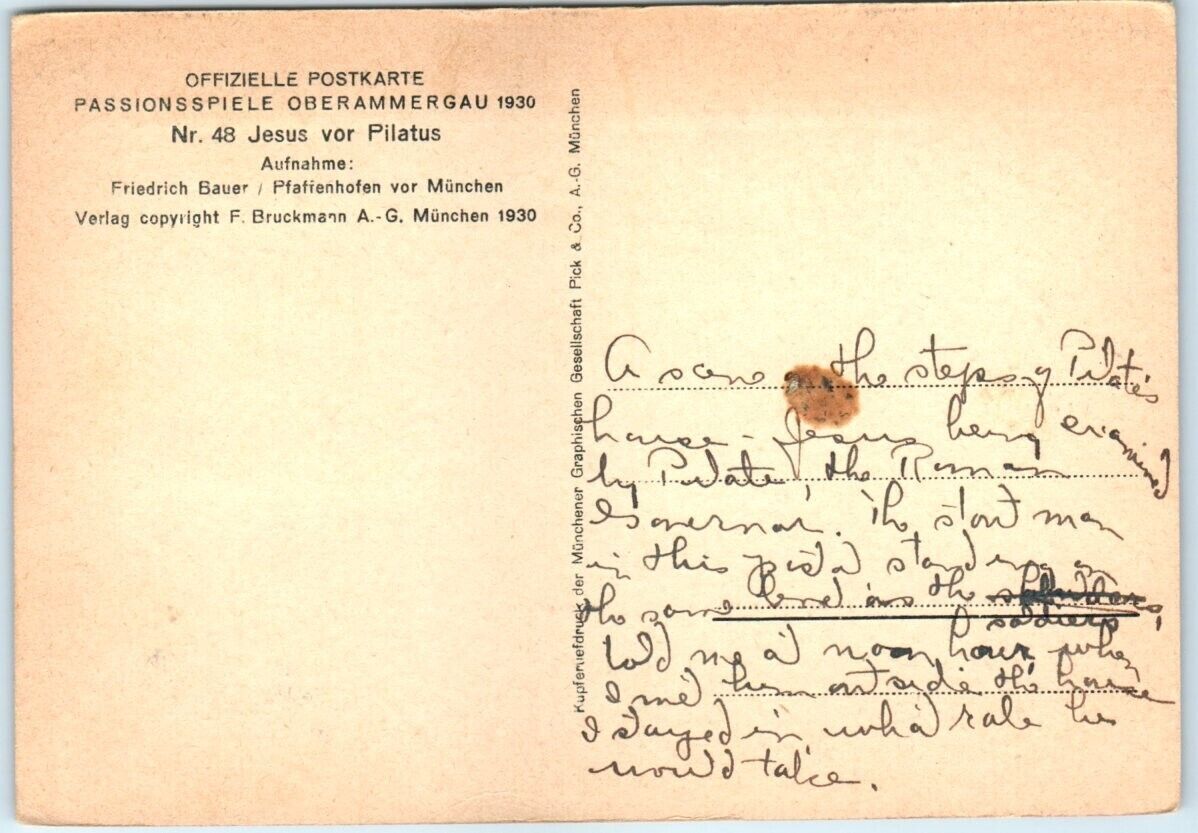 OFFIZIELLE POSTKARTE
PASSIONSSPIELE OBERAMMERGAU 1930
Nr. 48 Jesus vor Pilatus
Aufnahme:
Friedrich Bauer / Pfaffenhofen vor München
Verlag copyright F. Bruckmann A.-G. München 1930
Kupfertiefdruck der Münchener Graphischen Gesellschaft Pick & Co., A.-G. München
A scene the steps of Pilate's
house - Jesus being examined
by Pilate, the Roman
Governor. The stout man
in this standing on
the same level as the
soldiers,
told me at noon hour when
I met him outside the house
I stayed in, what role he
would take.